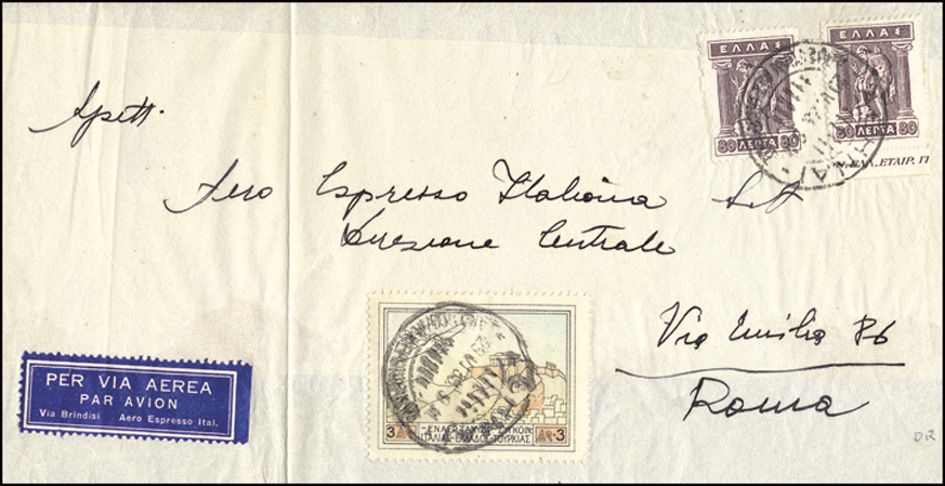 ΕΛΛΑΣ
80 ΛΕΠΤΑ 80
ΕΛΛΑΣ
80 ΛΕΠΤΑ 80
Ν. ΕΛΛ. ΕΤΑΙΡ. Π
Spett.
Aero Espresso Italiana S.A
Direzione Centrale
Via Emilia 86
Roma
PER VIA AEREA
PAR AVION
Via Brindisi Aero Espresso Ital.
3 ΔΡ ΔΡ 3
ΕΝΑΕΡ. ΤΑΧΥΔΡ. ΣΥΓΚΟΙΝ.
ΙΤΑΛΙΑΣ-ΕΛΛΑΔΟΣ-ΤΟΥΡΚΙΑΣ